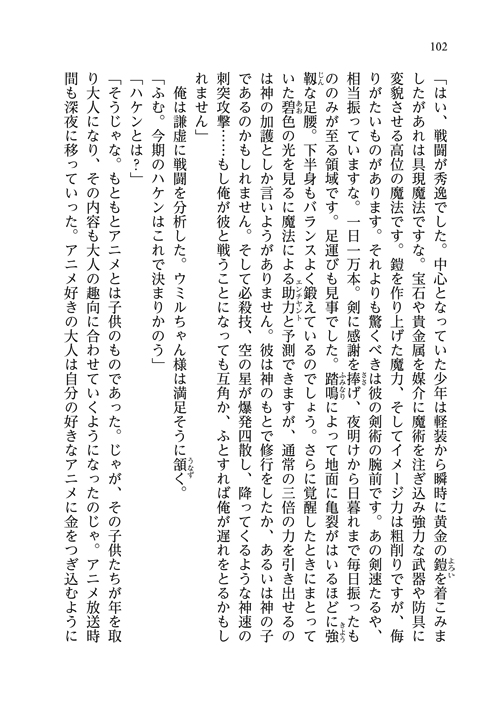 102
「はい、戦闘が秀逸でした。中心となっていた少年は軽装から瞬時に黄金の鎧を着こみま
したがあれは具現魔法ですな。宝石や貴金属を媒介に魔術を注ぎ込み強力な武器や防具に
変貌させる高位の魔法です。鎧を作り上げた魔力、そしてイメージ力は粗削りですが、侮
りがたいものがあります。それよりも驚くべきは彼の剣術の腕前です。あの剣速たるや、
相当振っていますな。一日一万本。剣に感謝を捧げ、夜明けから日暮れまで毎日振ったも
ののみが至る領域です。足運びも見事でした。踏鳴によって地面に亀裂がはいるほどに強
靱な足腰。下半身もバランスよく鍛えているのでしょう。さらに覚醒したときにまとって
いた碧色の光を見るに魔法による助力と予測できますが、通常の三倍の力を引き出せるの
は神の加護としか言いようがありません。彼は神のもとで修行をしたか、あるいは神の子
であるのかもしれません。そして必殺技、空の星が爆発四散し、降ってくるような神速の
刺突攻撃……もし俺が彼と戦うことになっても互角か、ふとすれば俺が遅れをとるかもし
れません」
俺は謙虚に戦闘を分析した。ウミルちゃん様は満足そうに頷く。
「ふむ。今期のハケンはこれで決まりかのう」
「ハケンとは？」
「そうじゃな。もともとアニメとは子供のものであった。じゃが、その子供たちが年を取
り大人になり、その内容も大人の趣向に合わせていくようになったのじゃ。アニメ放送時
間も深夜に移っていった。アニメ好きの大人は自分の好きなアニメに金をつぎ込むように